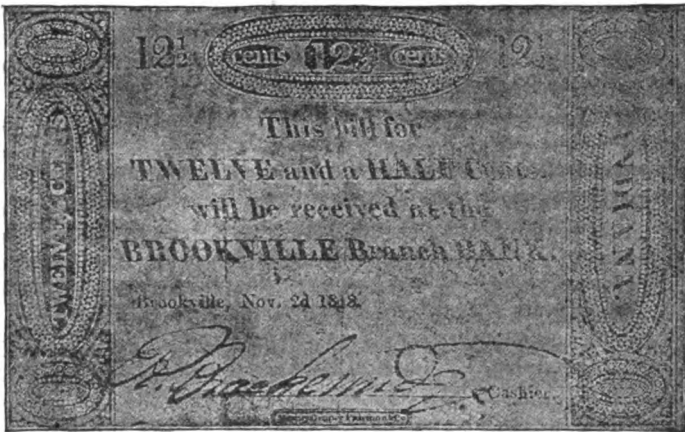 12½ cents 12½ cents 12½
This bill for
TWELVE and a HALF Cents.
will be received at the
BROOKVILLE Branch BANK.
Brookville, Nov. 2d 1818.
Cashier.
INDIANA.